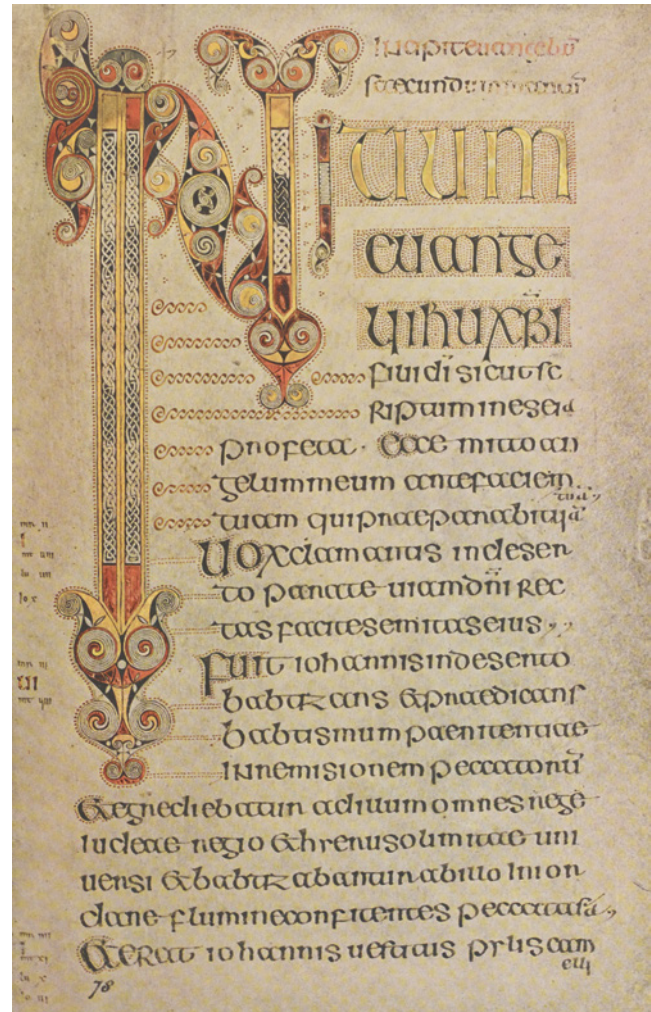 Incipit euangeliū
secundum marcū
INITIUM
euange
lii ihu xp̄i
fili dī sicut sc
riptum in eseia
profeta · Ecce mitto an
gelum meum ante faciem
tuā
tuam qui praeparabit uiā
Uox clamantis in deser
to parate uiam dn̄i rec
tas facite semitas eius
Fuit iohannis in deserto
babtizans & praedicans
babtismum paenitentiae
in remisionem peccatorū
& egrediebatur ad illum omnes
iudeae regio & hierusolimitae uni
uersi & babtizabantur ab illo in ior
dane flumine confitentes peccata
& erat iohannis uestitus pylis cam
eli
78